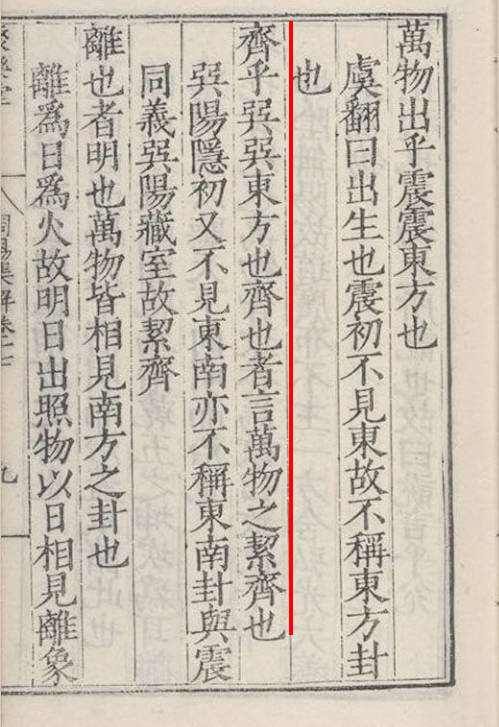 萬物出乎震震東方也
虞翻曰出生也震初不見東故不稱東方封
也
齊乎巽巽東方也齊也者言萬物之絜齊也
巽陽隱初又不見東南亦不稱東南封與震
同義巽陽藏室故絜齊
離也者明也萬物皆相見南方之封也
離為日為火故明日出照物以日相見離象